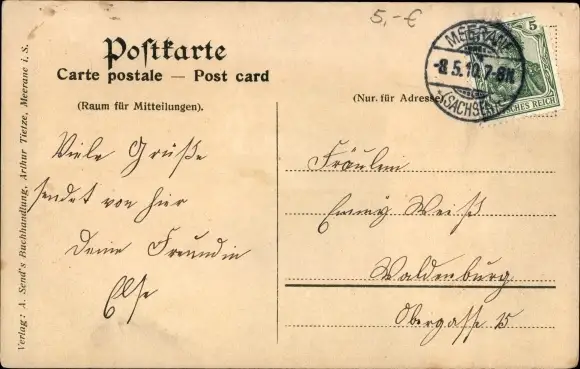 5,- €
Postkarte
Carte postale — Post card
(Raum für Mitteilungen).
(Nur für Adresse)
MEERANE
-8.5.10.7-8N.
(SACHSEN)
5
DEUTSCHES REICH
Viele Grüße
sendet von hier
Deine Freundin
Else
Fräulein
Emmy Weiß
Waldenburg
Obergasse 15
Verlag: A. Send's Buchhandlung, Arthur Tietze, Meerane i. S.